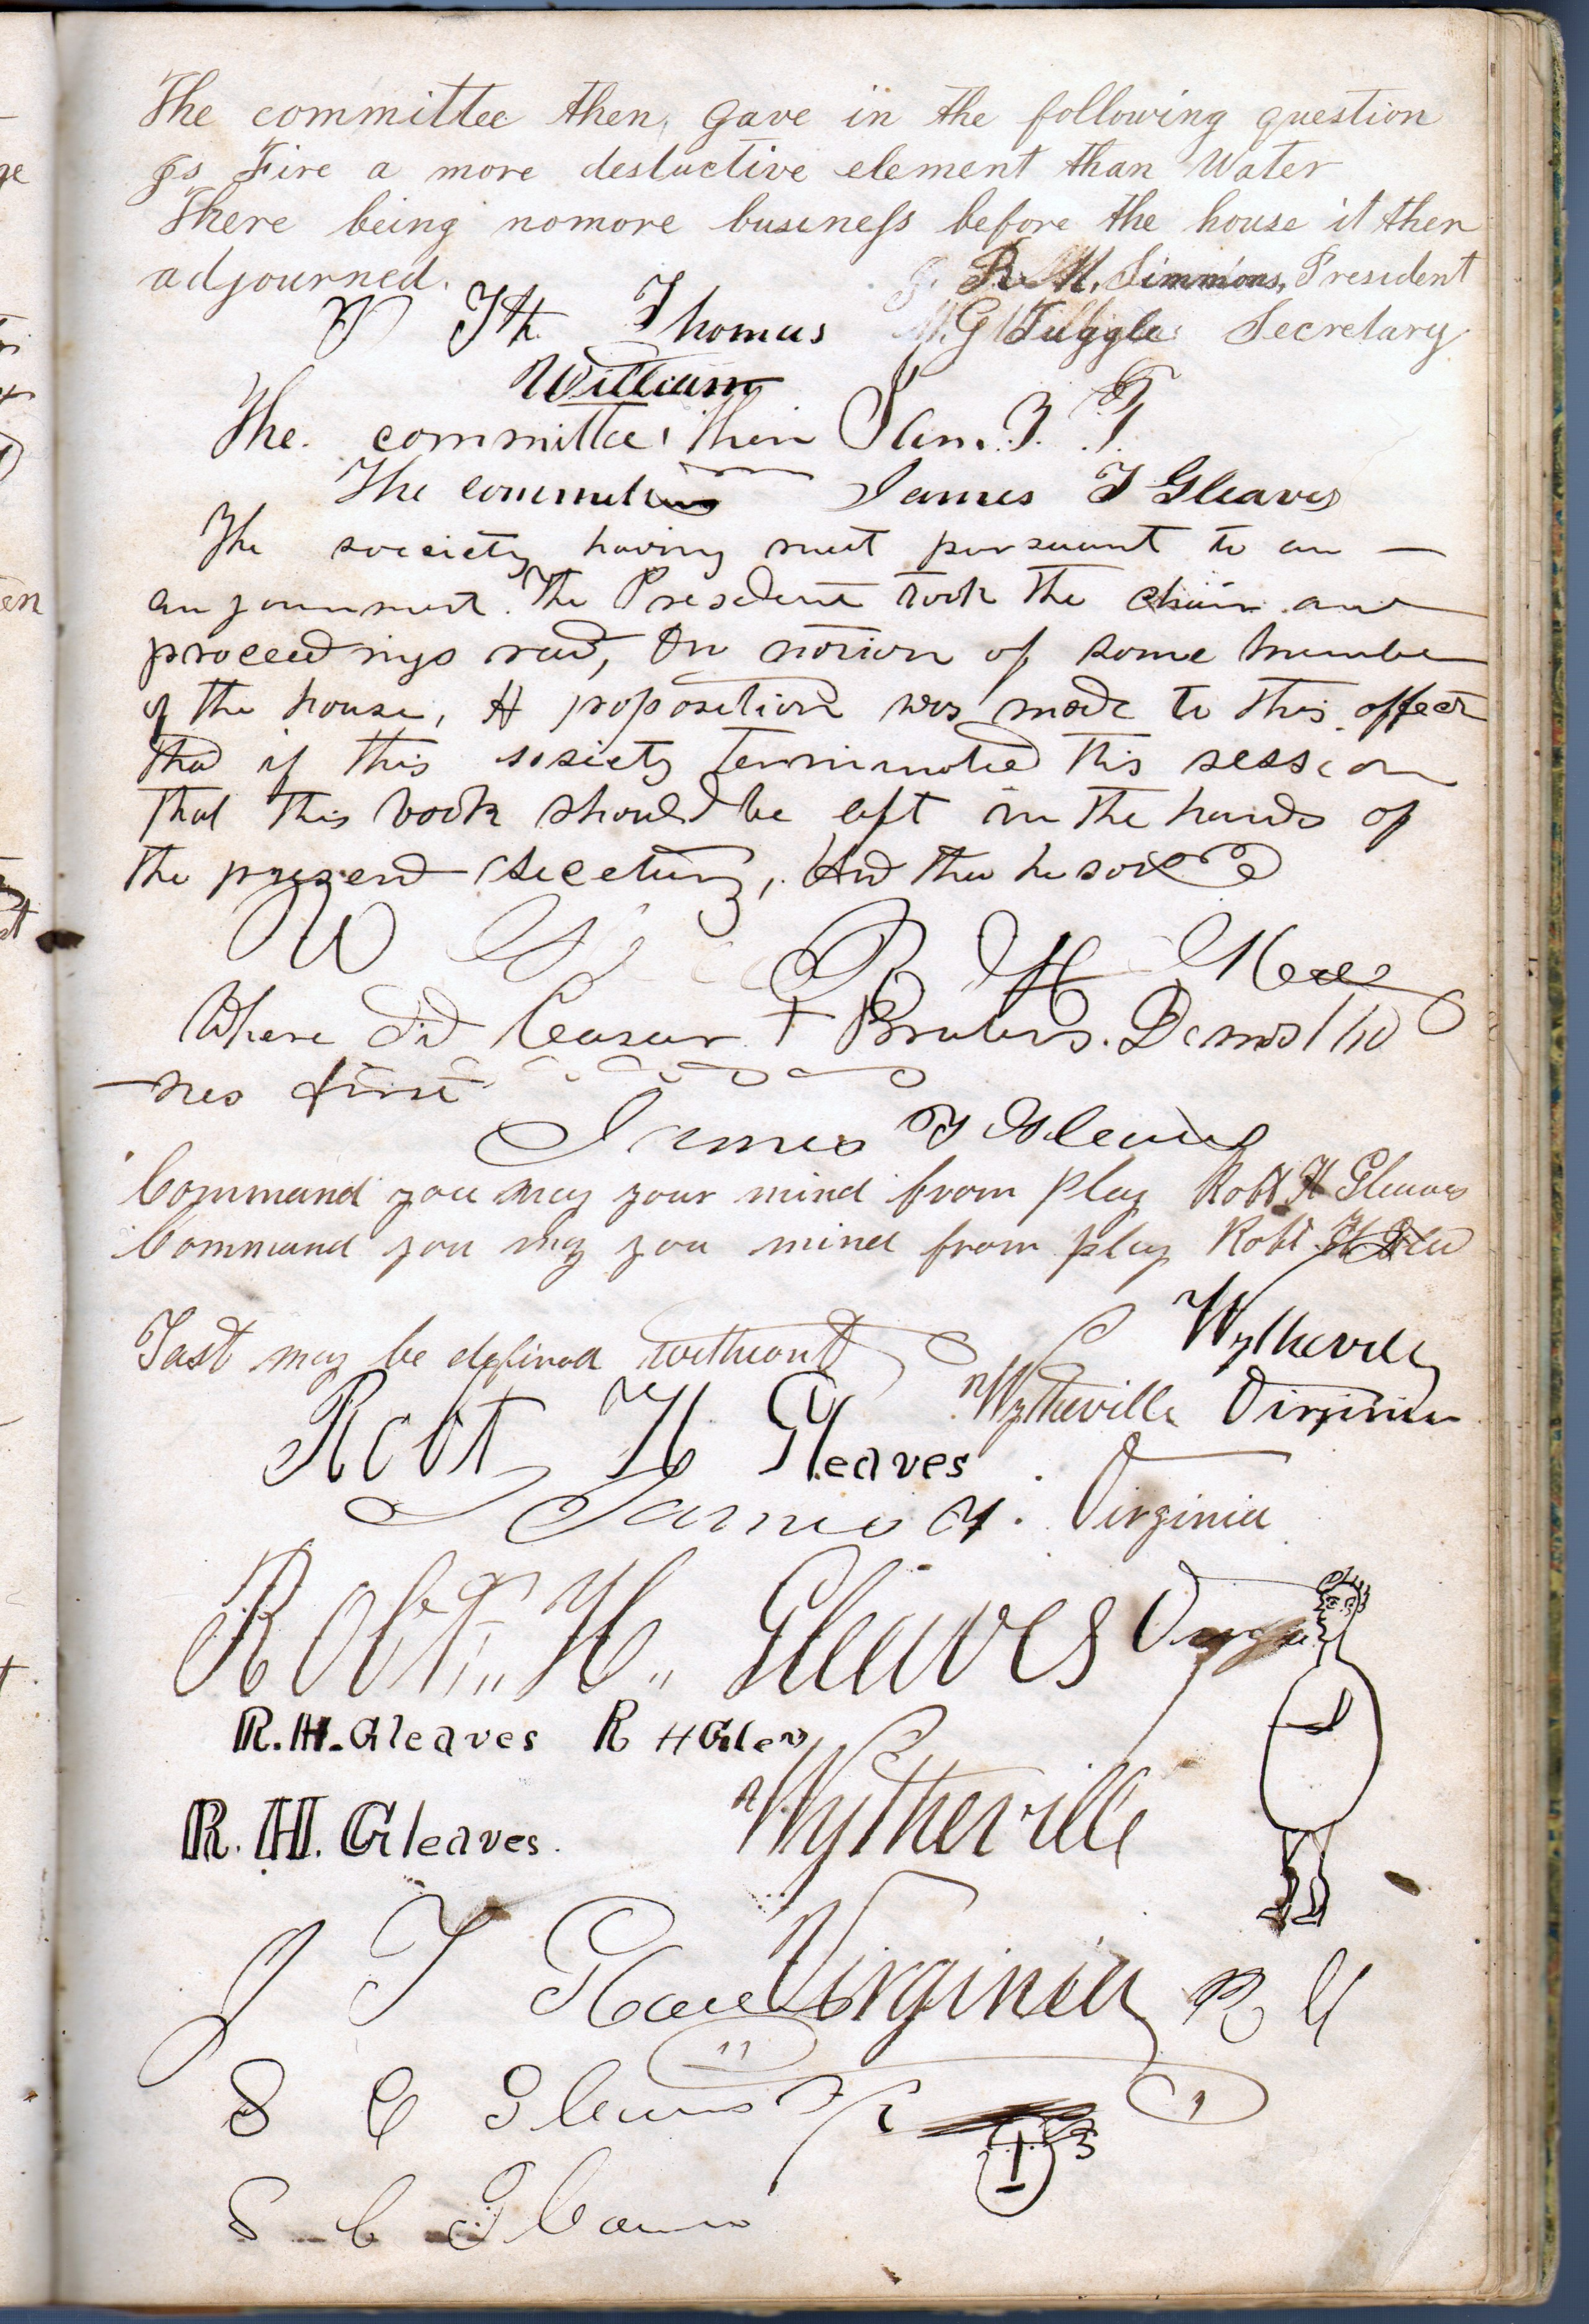 The committee then, gave in the following question
Is Fire a more destuctive element than Water
There being nomore business before the house it then
adjourned.
R. M. Simmons, President
Thomas W. G. Tuggle Secretary
William
The. committee then Jam. T.
The James T Gleaves
The society having met pursuant to an —
anjournment. The President took the chair and
proceedings read, On motion of some member
of the house, A proposition was made to this effect
that if this society terminated this session
that this book should be left in the hands of
the present
W G R H
Where did Ceasar + Brutus.
nes first
James T Gleaves
Command you may your mind from play Robt H Gleaves
Command you may you mind from play Robt H Glea
Wytheville
Tast may be defined without
Wytheville Virginia
Robt H Gleaves
James T. Virginia
Robt,, H,, Gleaves
R.H.Gleaves R H Gleav
Wytheville
R.H. Gleaves.
J T Gleaves Virginia R H
S C Gleaves Jr
S C Gleaves